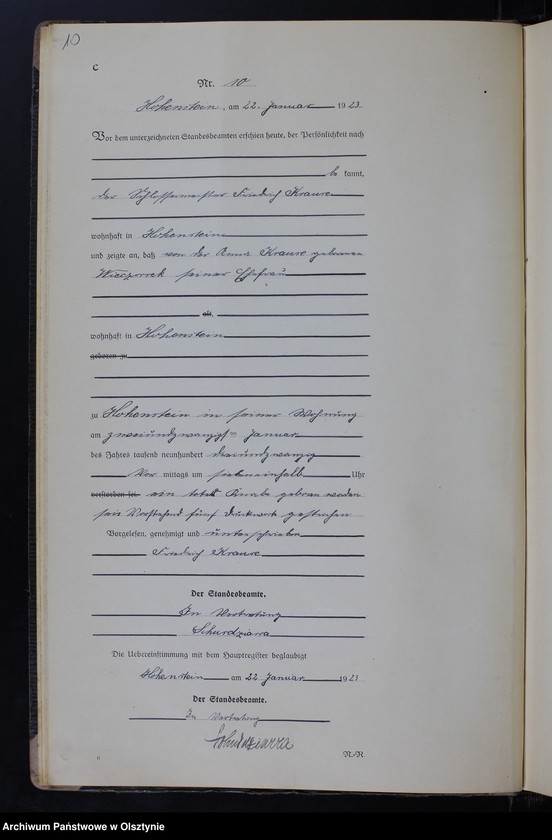 10
C
Nr. 10
Hohenstein, am 22. Januar 1923
Vor dem unterzeichneten Standesbeamten erschien heute, der Persönlichkeit nach
be kannt,
der Schlossermeister Friedrich Krause
wohnhaft in Hohenstein
und zeigte an, daß von der Anna Krause geborenen
Wieczorrek seiner Ehefrau
alt,
wohnhaft in Hohenstein
geboren zu
zu Hohenstein in seiner Wohnung
am zweiundzwanzigsten Januar
des Jahres tausend neunhundert dreiundzwanzig
Vor mittags um siebeneinhalb Uhr
verstorben sei. ein totes Knabe geboren worden
sei Vorstehend fünf Druckworte gestrichen
Vorgelesen, genehmigt und unterschrieben
Friedrich Krause
Der Standesbeamte.
In Vertretung
Schurdziarra
Die Uebereinstimmung mit dem Hauptregister beglaubigt
Hohenstein am 22 Januar 1923
Der Standesbeamte.
In Vertretung
Schurdziarra
N/R.
Archiwum Państwowe w Olsztynie